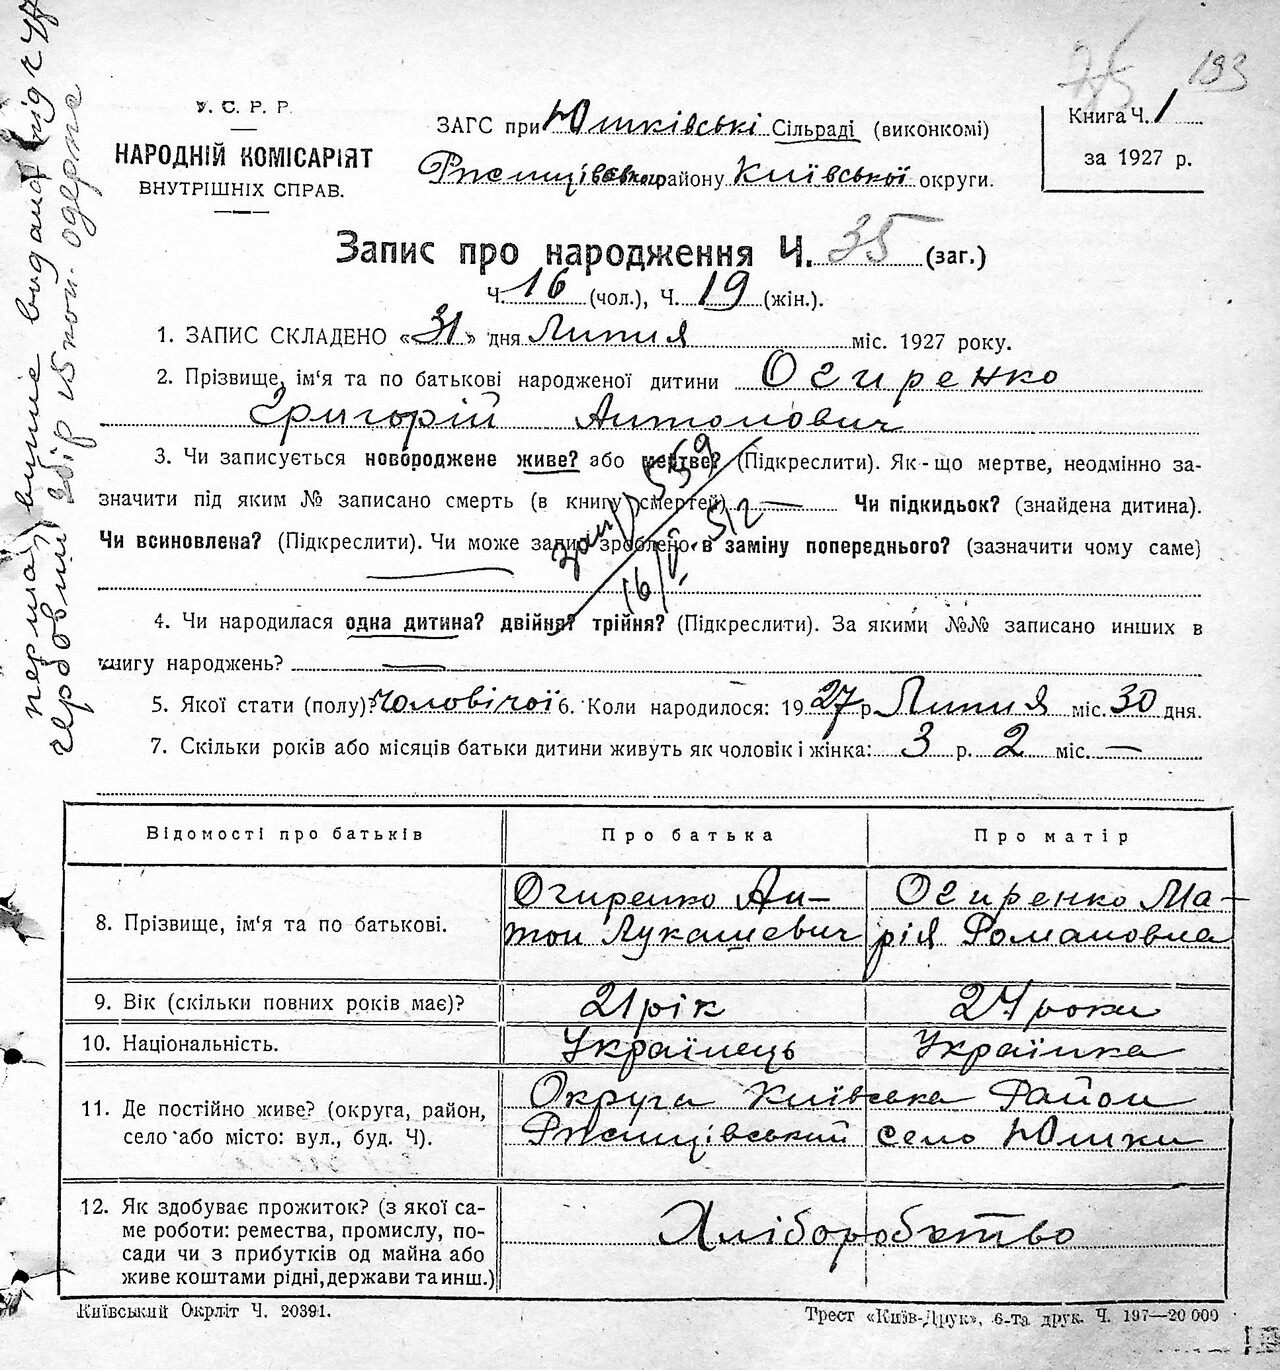 193
У. С. Р. Р.
НАРОДНІЙ КОМІСАРІЯТ
ВНУТРІШНІХ СПРАВ.
ЗАГС при Юшківські Сільраді (виконкомі)
Ржищівськ району Київської округи.
Книга Ч. 1
за 1927 р.
Запис про народження Ч. 35 (заг.)
Ч. 16 (чол.), Ч. 19 (жін.).
1. ЗАПИС СКЛАДЕНО «31» дня Липня міс. 1927 року.
2. Прізвище, ім'я та по батькові народженої дитини Огиренко
Григорій Антонович
3. Чи записується новороджене живе? або мертве? (Підкреслити). Як-що мертве, неодмінно за-
значити під яким № записано смерть (в книгу смертей) — Чи підкидьок? (знайдена дитина).
Чи всиновлена? (Підкреслити). Чи може запис зроблено в заміну попереднього? (зазначити чому саме)
559
16/V 512
4. Чи народилася одна дитина? двійня? трійня? (Підкреслити). За якими №№ записано инших в
книгу народжень? —
5. Якої стати (полу)? Чоловічої 6. Коли народилося: 1927 р. Липня міс. 30 дня.
7. Скільки років або місяців батьки дитини живуть як чоловік і жінка: 3 р. 2 міс. —
Відомості про батьків Про батька Про матір
8. Прізвище, ім'я та по батькові.
Огиренко Ан-
тон Лукашевич
Огиренко Ма-
рія Романовна
9. Вік (скільки повних років має)? 21 рік 24 роки
10. Національність. Українець Українка
11. Де постійно живе? (округа, район,
село або місто: вул., буд. Ч).
Округа Київська Район
Ржищівський село Юшки
12. Як здобуває прожиток? (з якої са-
ме роботи: ремества, промислу, по-
сади чи з прибутків од майна або
живе коштами рідні, держави та инш.)
Хліборобство
Київський Окрліт Ч. 20391.
Трест «Київ-Друк», 6-та друк. Ч. 197—20 000